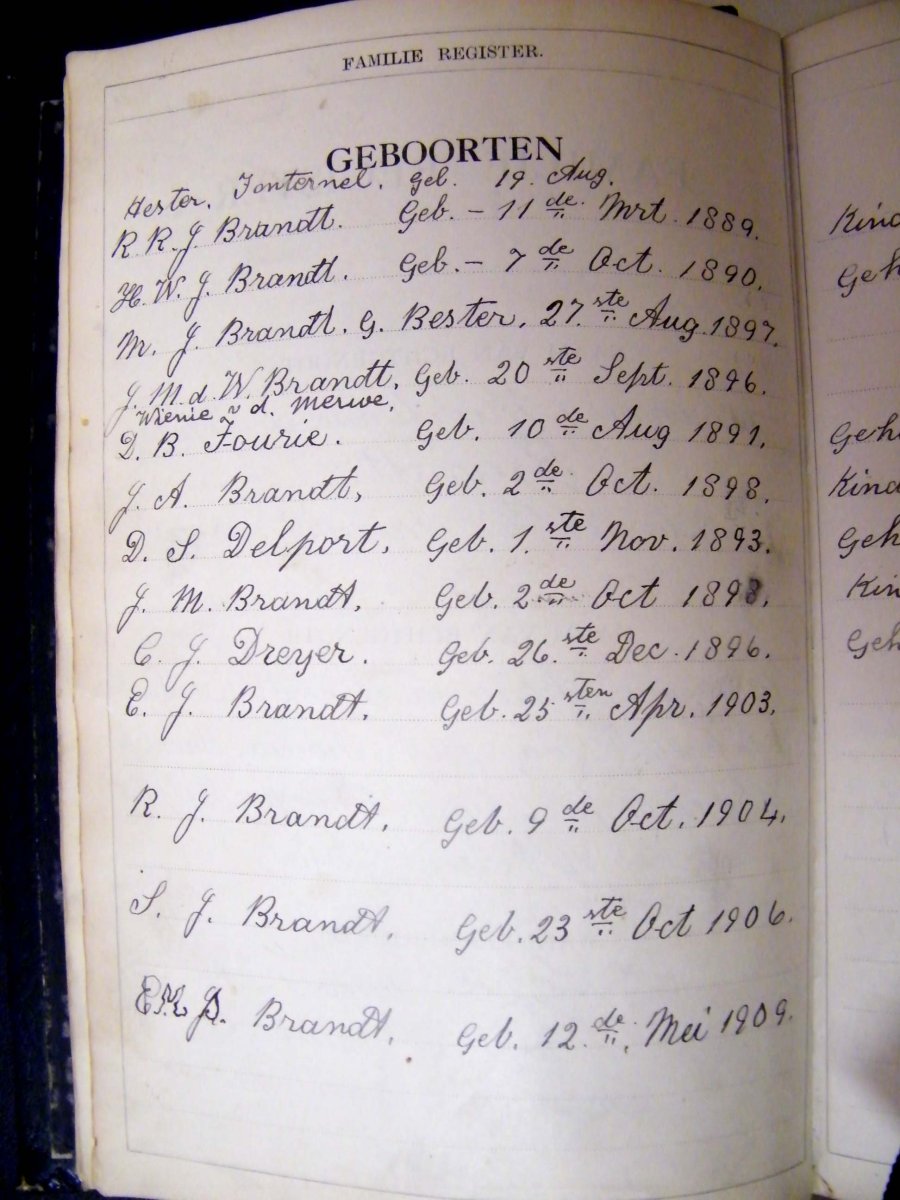 FAMILIE REGISTER.
GEBOORTEN
Hester. Geb. 19. Aug.
R. R. J. Brandt. Geb. – 11 de Mrt. 1889.
H. W. J. Brandt. Geb. – 7 de Oct. 1890.
M. J. Brandt. G. Bester. 27. ste Aug. 1897.
J. M. d. W. Brandt. Geb. 20 ste Sept. 1896.
Wienie v d. Merwe.
D. B. Fourie. Geb. 10 de Aug 1891.
J. A. Brandt, Geb. 2 de Oct. 1898.
D. S. Delport. Geb. 1. ste Nov. 1893.
J. M. Brandt, Geb. 2 de Oct 1898.
C. J. Dreyer. Geb. 26. ste Dec. 1896.
E. J. Brandt. Geb. 25 sten Apr. 1903.
R. J. Brandt. Geb. 9 de Oct. 1904.
S. J. Brandt. Geb. 23 ste Oct 1906.
Brandt. Geb. 12. de. Mei 1909.
Kin
Geh
Geh
Kind
Geh
Kin
Geh